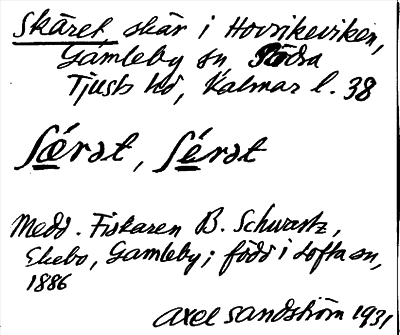 Skäret skär i Hovrikeviken,
Gamleby sn Södra
Tjusts hd, Kalmar l. 38
Sǽrət, Sérət
Medd. Fiskaren B. Schwartz,
Ekebo, Gamleby; född i Lofta sn,
1886
Axel Sandström 1931